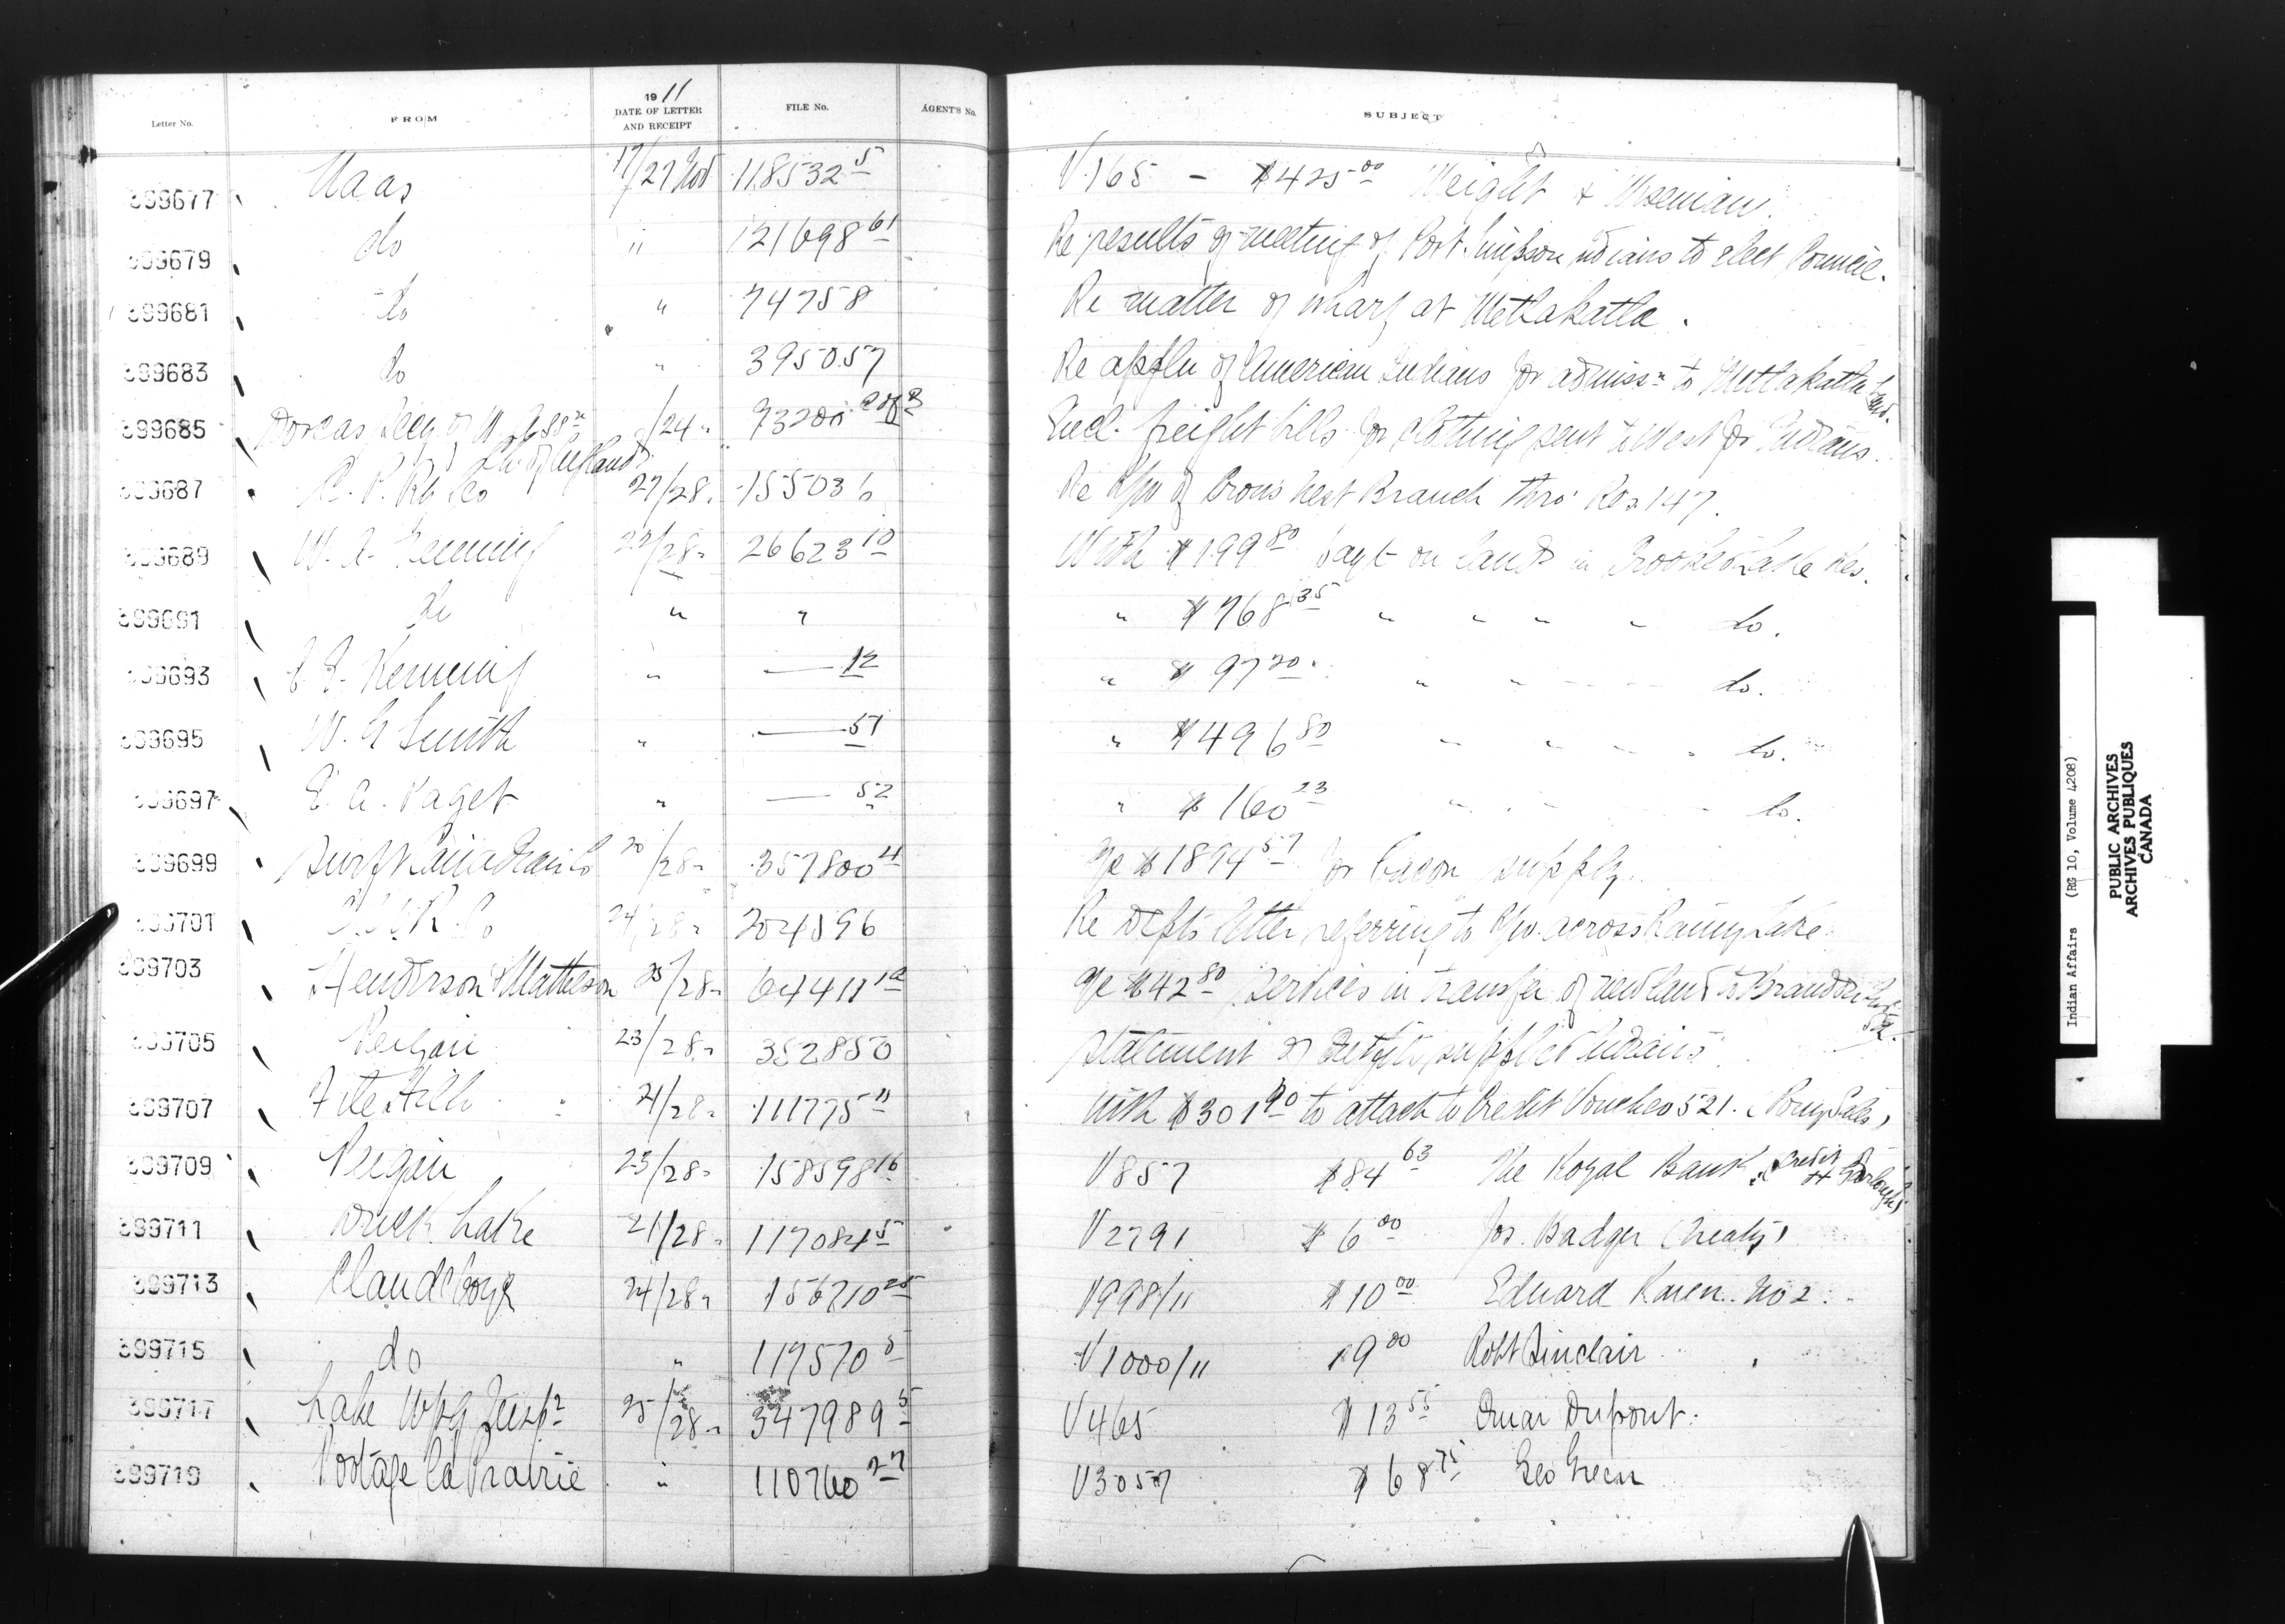 Letter No. FROM 1911 DATE OF LETTER AND RECEIPT FILE No. AGENT'S No. SUBJECT
399677 Naas 17/27 Nov 118532 5 V165 - $425 00 Weight &
399679 do " 121698 61 Re results of meeting of Port Simpson Indians to elect Council.
399681 do " 74758 Re matter of wharf at Metlakatla.
399683 do " 395057 Re appln of American Indians for admissn to Metlakatla Band.
399685 Dorcas Secy of W. Assn Ch of England /24 " 73200 Encl. freight bills for clothing sent to West for Indians.
399687 C. P. Ry Co 27/28 " 155036 Re R/w of Crows Nest Branch thro' Res 147.
399689 W. A. 22/28 " 26623 10 With $199 80 payt on land in Crooked Lake Res.
399691 do " " " $768 35 " " " " do.
399693 Kenning " — 12 " $97 20 " " do.
399695 W. G Smith " — 51 " $496 80 " " " do.
399697 E. A. Paget " — 52 " $160 23 " do.
399699 Swift Canadian Co 20/28 " 357800 4 a/c $1894 57 for bacon supply.
399701 C. N. R. Co 24/28 " 204596 Re Depts letter referring to R/w across Rainy Lake.
399703 Henderson & Matheson 25/28 " 64411 a/c $42 80 services in transfer of new land to
399705 Peigan 23/28 " 352850 Statement of supplies Indians
399707 File Hills 21/28 " 111775 11 With $301 90 to attach to Credit Voucher 521. (Pony Sales)
399709 Peigan 23/28 " 158598 16 V857 $84 63 The Royal Bank, Credit
399711 Duck Lake 21/28 " 117084 5 V2791 $6 00 Jos. Badger (Treaty)
399713 Clandeboye 24/28 " 156710 25 V998/11 $10 00 Edward Karen No 2.
399715 do " 117570 5 V1000/11 $9 00 Robt Sinclair
399717 Lake Wpg Insp 25/28 " 347989 5 V465 $13 55 Dupont.
399719 Portage la Prairie " 110760 27 V3057 $68 75 Geo Green
Indian Affairs (RG 10, Volume 4208)
PUBLIC ARCHIVES
ARCHIVES PUBLIQUES
CANADA